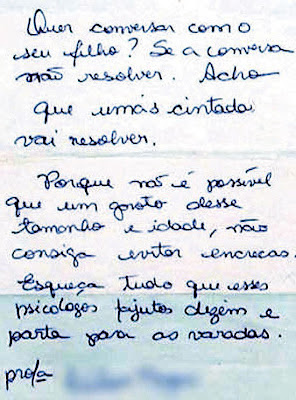 Quer conversar com o
seu filho? Se a conversa
não resolver. Acho
que umas cintada
vai resolver.
Porque não é possível
que um garoto desse
tamanho e idade, não
consiga evitar encrecas.
Esqueça tudo que esses
psicologos fajutos dizem e
parta para as varadas.
profa